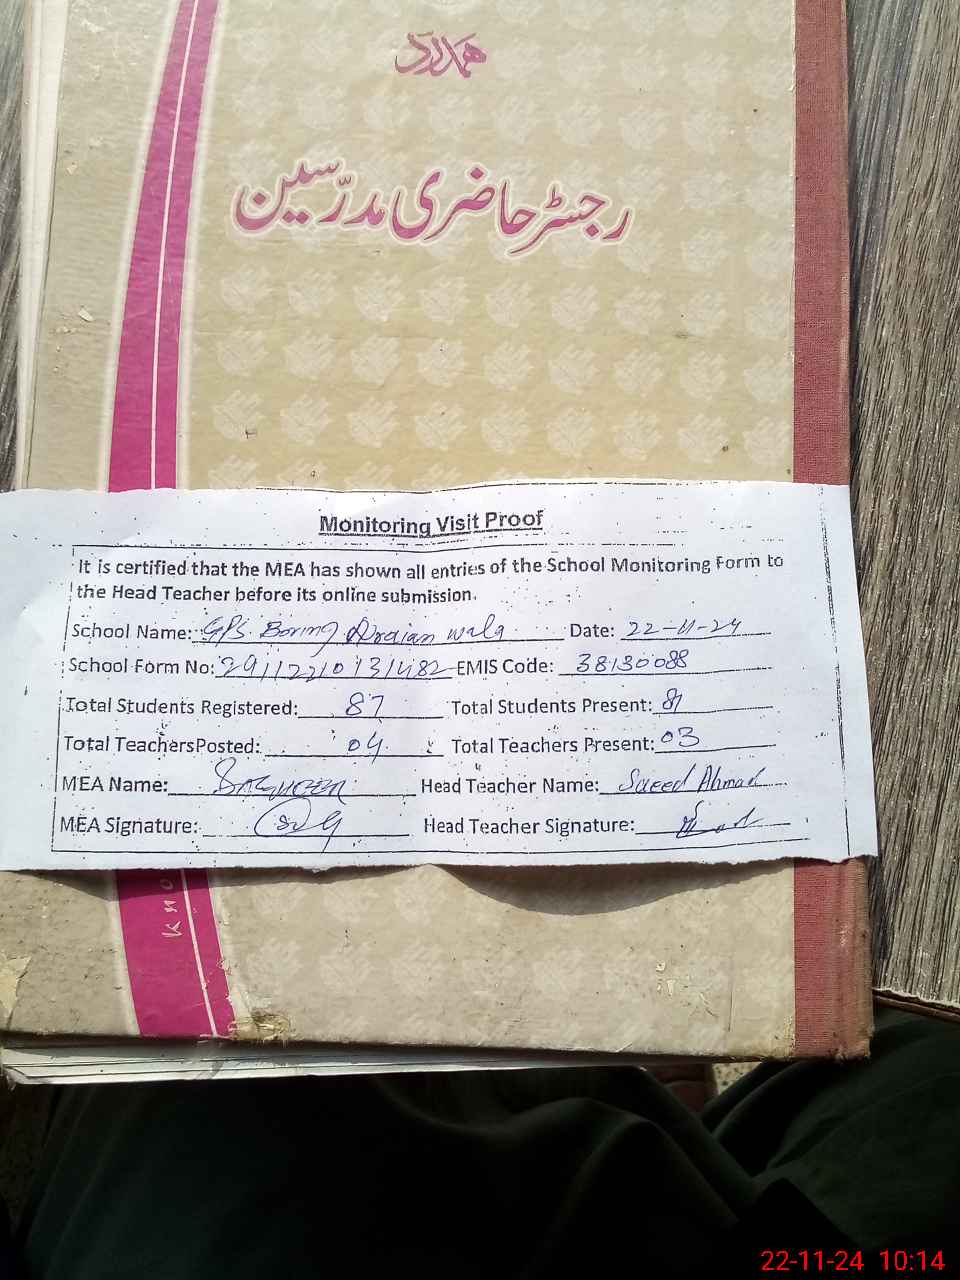 ہمدرد
رجسٹر حاضری مدرّسین
Monitoring Visit Proof
It is certified that the MEA has shown all entries of the School Monitoring Form to
the Head Teacher before its online submission.
School Name: GPS Boring Araian wala Date: 22-11-24
School Form No: EMIS Code: 38130088
Total Students Registered: 87 Total Students Present: 81
Total Teachers Posted: 04 Total Teachers Present: 03
MEA Name: Head Teacher Name: Saeed Ahmad
MEA Signature: Head Teacher Signature:
22-11-24 10:14